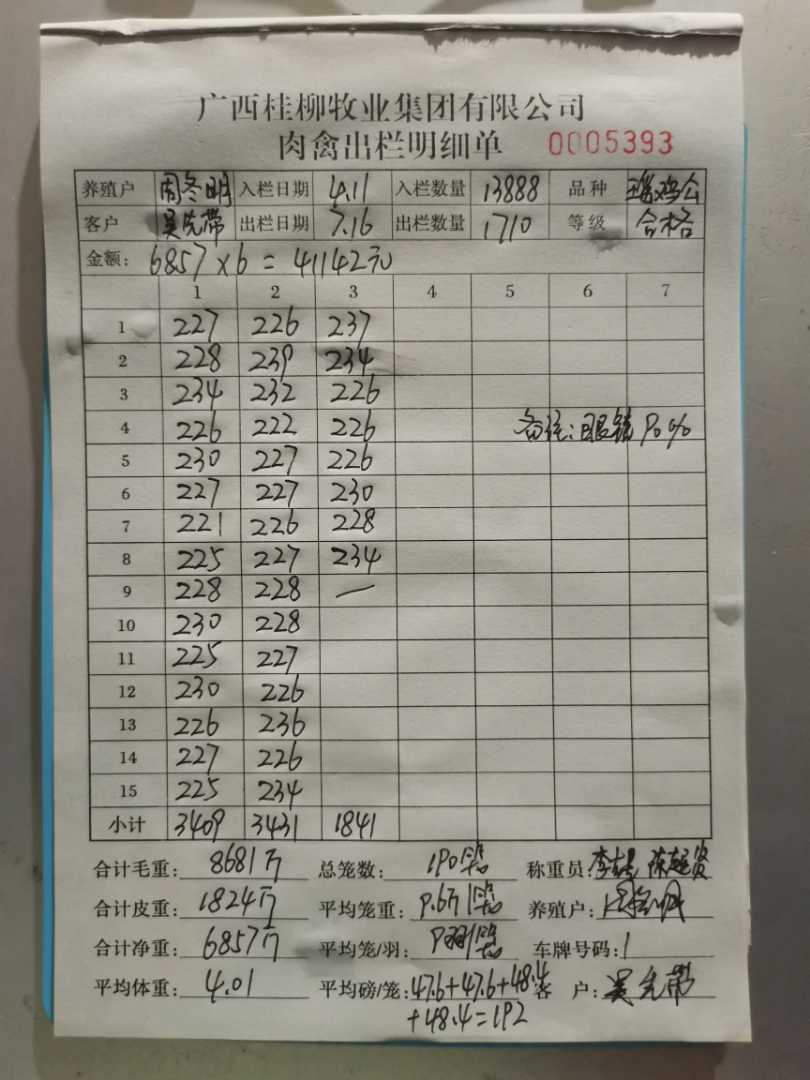 广西桂柳牧业集团有限公司
肉禽出栏明细单 0005393
养殖户 周冬明 入栏日期 4.11 入栏数量 13888 品种 瑶鸡公
客户 吴先带 出栏日期 7.16 出栏数量 1710 等级 合格
金额: 6857×6=41142元
1 2 3 4 5 6 7
1 227 226 237
2 228 239 234
3 234 232 226
4 226 222 226 备注:眼镜90%
5 230 227 226
6 227 227 230
7 221 226 228
8 225 227 234
9 228 228 —
10 230 228
11 225 227
12 230 226
13 226 236
14 227 226
15 225 234
小计 3409 3431 1841
合计毛重: 8681斤 总笼数: 190笼 称重员:
合计皮重: 1824斤 平均笼重: 9.6斤/笼 养殖户:
合计净重: 6857斤 平均笼/羽: 9羽/笼 车牌号码: /
平均体重: 4.01 平均磅/笼: 47.6+47.6+48.4 客 户: 吴先带
+48.4=192